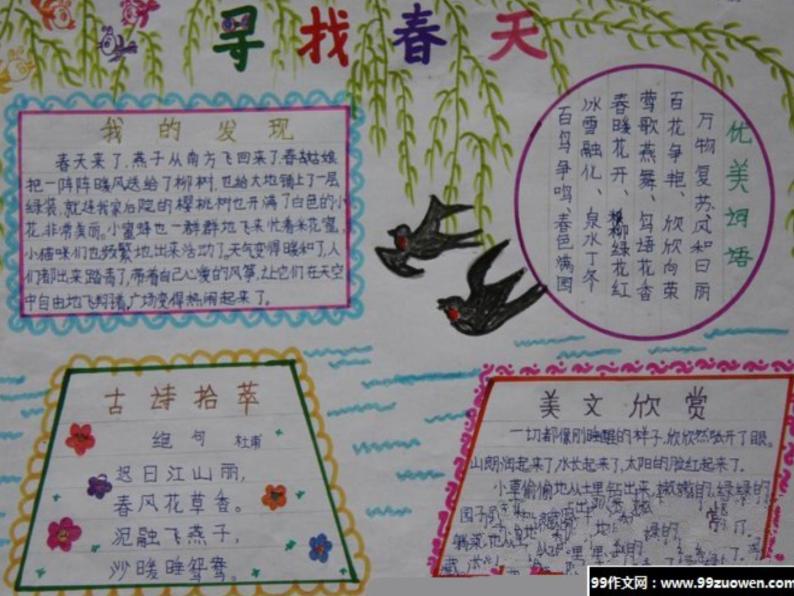 寻找春天
我的发现
春天来了,燕子从南方飞回来了,春姑娘
把一阵阵暖风送给了柳树,也给大地铺上了一层
绿装,就连我家后院的樱桃树也开满了白色的小
花,非常美丽。小蜜蜂也一群群地飞来忙着采花蜜,
小猫咪们也频繁地出来活动了。天气变得暖和了,人
们都出来踏青了,带着自己心爱的风筝,让它们在天空
中自由地飞翔着,广场变得热闹起来了。
优美词语
万物复苏、风和日丽
百花争艳、欣欣向荣
莺歌燕舞、鸟语花香
春暖花开、柳绿花红
冰雪融化、泉水丁冬
百鸟争鸣、春色满园
古诗拾萃
绝句 杜甫
迟日江山丽,
春风花草香。
泥融飞燕子,
沙暖睡鸳鸯。
美文欣赏
一切都像刚睡醒的样子,欣欣然张开了眼。
山朗润起来了,水长起来了,太阳的脸红起来了。
小草偷偷地从土里钻出来,嫩嫩的,绿绿的
园子
99作文网：www.99zuowen.com